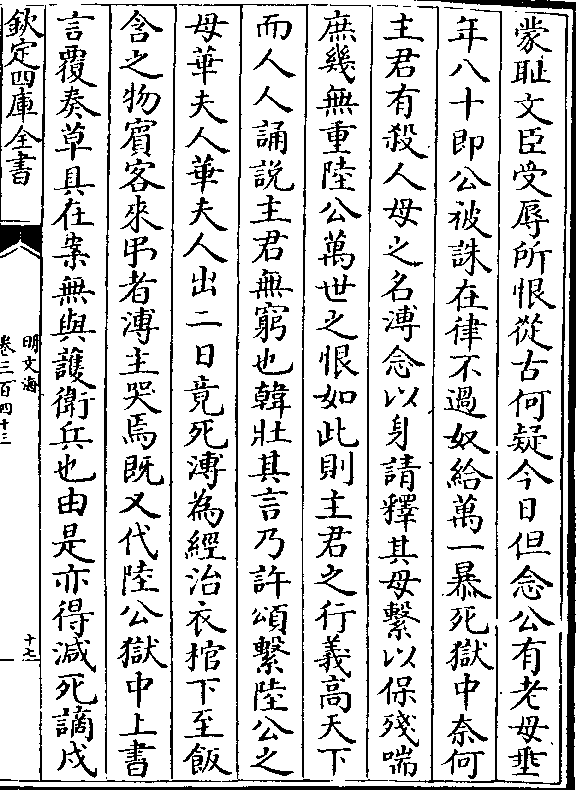 蒙耻文臣受辱所恨從古何疑今日但念公有老母垂
年八十即公被誅在律不過奴給萬一暴死獄中奈何
主君有殺人母之名溥念以身請釋其母繫以保殘喘
庶幾無重陸公萬世之恨如此則主君之行義高天下
而人人誦説主君無窮也韓壯其言乃許頌繫陸公之
母華夫人華夫人出二日竟死溥為經治衣棺下至飯
含之物賓客來弔者溥主哭焉既又代陸公獄中上書
言覆奏草具在案無與護衛兵也由是亦得減死謫戍
欽定四庫全書
明文海
卷三百四十三
十七